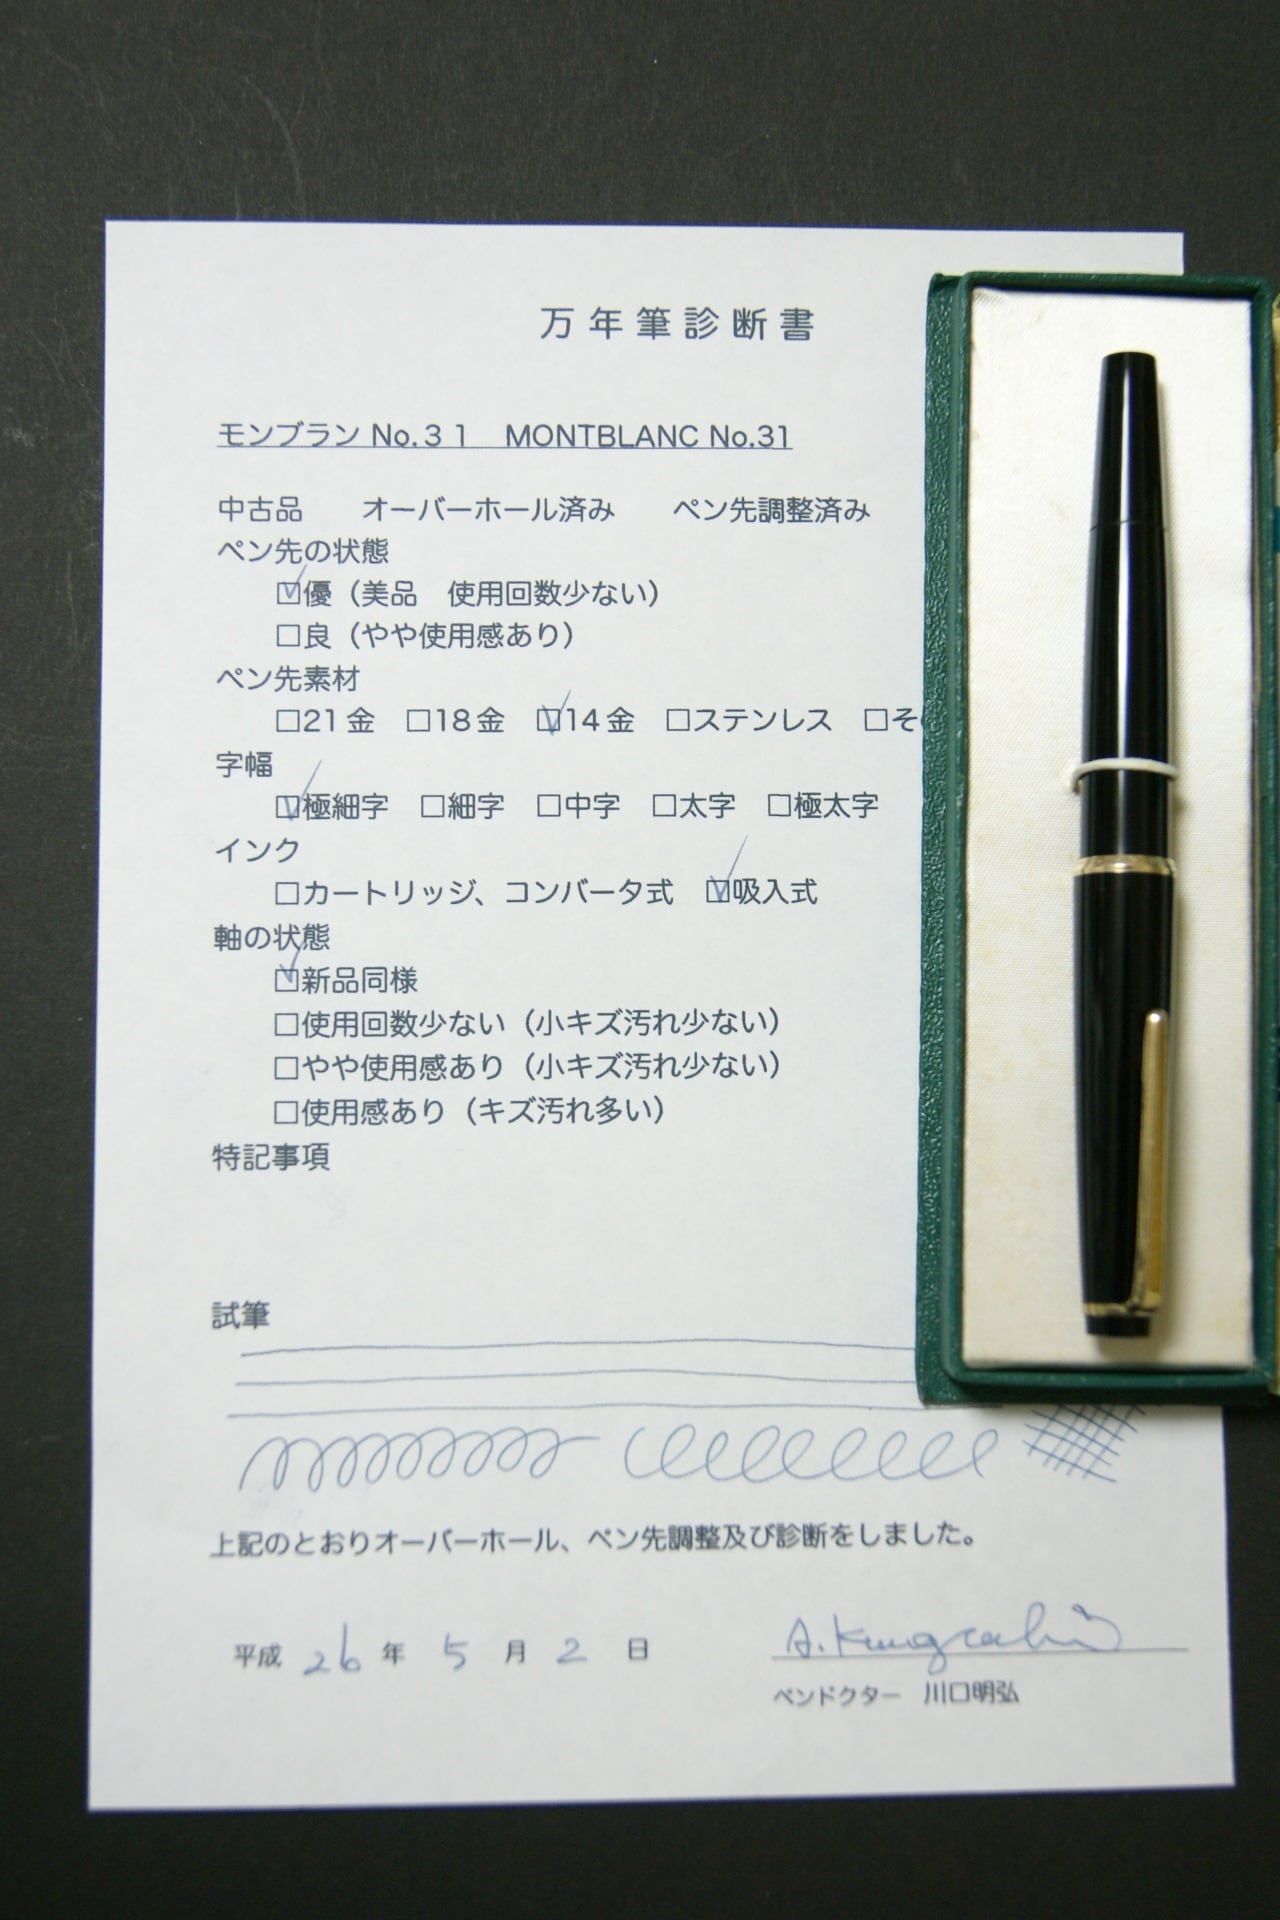 万年筆診断書
モンブラン No.３１　MONTBLANC No.31
中古品　　オーバーホール済み　　ペン先調整済み
ペン先の状態
☑優（美品　使用回数少ない）
□良（やや使用感あり）
ペン先素材
□21金　□18金　☑14金　□ステンレス　□そ
字幅
☑極細字　□細字　□中字　□太字　□極太字
インク
□カートリッジ、コンバータ式　☑吸入式
軸の状態
☑新品同様
□使用回数少ない（小キズ汚れ少ない）
□やや使用感あり（小キズ汚れ少ない）
□使用感あり（キズ汚れ多い）
特記事項
試筆
上記のとおりオーバーホール、ペン先調整及び診断をしました。
平成 26 年 5 月 2 日
ペンドクター　川口明弘